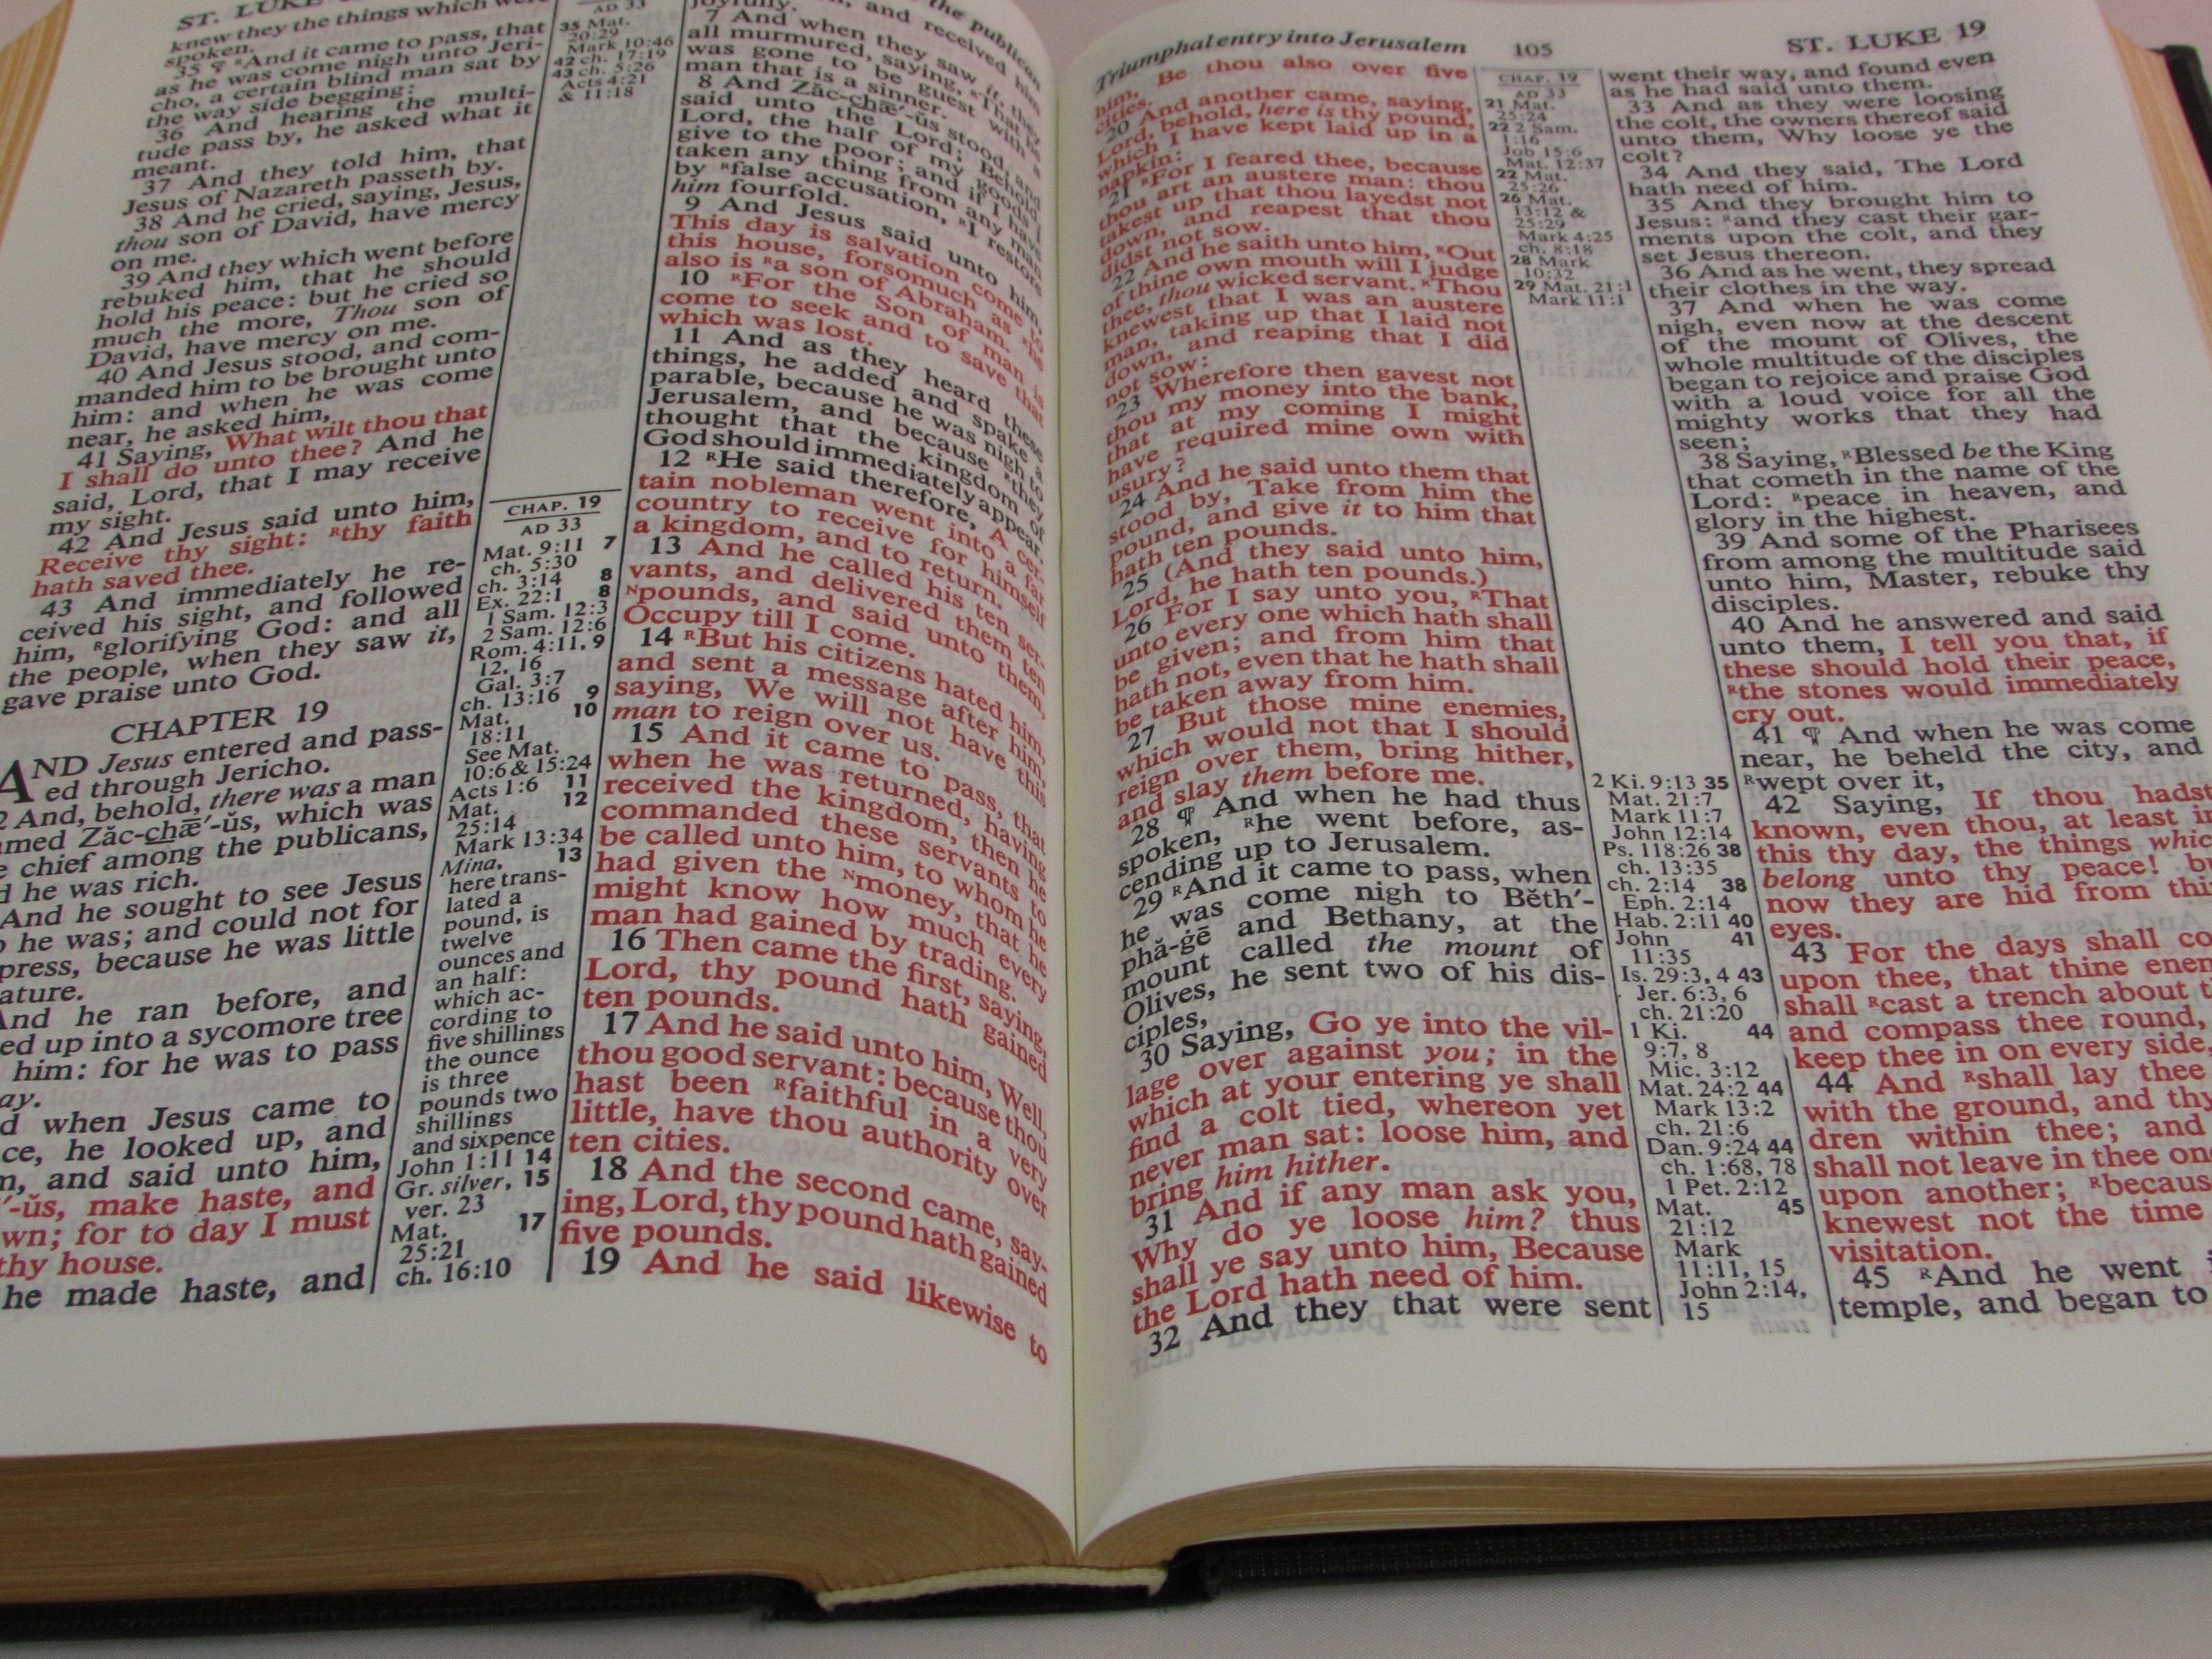 ST. LUKE
knew they the things which were
spoken.
35 ¶ ᴿAnd it came to pass, that
as he was come nigh unto Jeri-
cho, a certain blind man sat by
the way side begging:
36 And hearing the multi-
tude pass by, he asked what it
meant.
37 And they told him, that
Jesus of Nazareth passeth by.
38 And he cried, saying, Jesus,
thou son of David, have mercy
on me.
39 And they which went before
rebuked him, that he should
hold his peace: but he cried so
much the more, Thou son of
David, have mercy on me.
40 And Jesus stood, and com-
manded him to be brought unto
him: and when he was come
near, he asked him,
41 Saying, What wilt thou that
I shall do unto thee? And he
said, Lord, that I may receive
my sight.
42 And Jesus said unto him,
Receive thy sight: ᴿthy faith
hath saved thee.
43 And immediately he re-
ceived his sight, and followed
him, ᴿglorifying God: and all
the people, when they saw it,
gave praise unto God.
CHAPTER 19
AND Jesus entered and pass-
ed through Jericho.
2 And, behold, there was a man
amed Zăc-chæ̅′-ŭs, which was
e chief among the publicans,
d he was rich.
And he sought to see Jesus
o he was; and could not for
press, because he was little
ature.
And he ran before, and
ed up into a sycomore tree
him: for he was to pass
ay.
d when Jesus came to
ce, he looked up, and
n, and said unto him,
′-ŭs, make haste, and
wn; for to day I must
thy house.
he made haste, and
AD 33
35 Mat.
20:29
Mark 10:46
42 ch. 17:19
43 ch. 5:26
Acts 4:21
& 11:18
CHAP. 19
AD 33
Mat. 9:11 7
ch. 5:30
ch. 3:14 8
Ex. 22:1 8
1 Sam. 12:3
2 Sam. 12:6
Rom. 4:11, 9
12, 16
Gal. 3:7
ch. 13:16 9
Mat. 10
18:11
See Mat.
10:6 & 15:24
Acts 1:6 11
Mat. 12
25:14
Mark 13:34
Mina, 13
here trans-
lated a
pound, is
twelve
ounces and
an half:
which ac-
cording to
five shillings
the ounce
is three
pounds two
shillings
and sixpence
John 1:11 14
Gr. silver, 15
ver. 23
Mat. 17
25:21
ch. 16:10
the publican
and received him
joyfully.
7 And when they saw it, they
all murmured, saying, ᴿThat he
was gone to be guest with a
man that is a sinner.
8 And Zăc-chæ̅′-ŭs stood, and
said unto the Lord; Behold,
Lord, the half of my goods I
give to the poor; and if I have
taken any thing from any man
by ᴿfalse accusation, ᴿI restore
him fourfold.
9 And Jesus said unto him,
This day is salvation come to
this house, forsomuch as ᴿhe
also is ᴿa son of Abraham.
10 ᴿFor the Son of man is
come to seek and to save that
which was lost.
11 And as they heard these
things, he added and spake a
parable, because he was nigh to
Jerusalem, and because ᴿthey
thought that the kingdom of
God should immediately appear.
12 ᴿHe said therefore, A cer-
tain nobleman went into a far
country to receive for himself
a kingdom, and to return.
13 And he called his ten ser-
vants, and delivered them ten
ᴺpounds, and said unto them,
Occupy till I come.
14 ᴿBut his citizens hated him,
and sent a message after him,
saying, We will not have this
man to reign over us.
15 And it came to pass, that
when he was returned, having
received the kingdom, then he
commanded these servants to
be called unto him, to whom he
had given the ᴺmoney, that he
might know how much every
man had gained by trading.
16 Then came the first, saying,
Lord, thy pound hath gained
ten pounds.
17 And he said unto him, Well,
thou good servant: because thou
hast been ᴿfaithful in a very
little, have thou authority over
ten cities.
18 And the second came, say-
ing, Lord, thy pound hath gained
five pounds.
19 And he said likewise to
Triumphal entry into Jerusalem 105 ST. LUKE 19
him, Be thou also over five
cities.
20 And another came, saying,
Lord, behold, here is thy pound,
which I have kept laid up in a
napkin:
21 ᴿFor I feared thee, because
thou art an austere man: thou
takest up that thou layedst not
down, and reapest that thou
didst not sow.
22 And he saith unto him, ᴿOut
of thine own mouth will I judge
thee, thou wicked servant. ᴿThou
knewest that I was an austere
man, taking up that I laid not
down, and reaping that I did
not sow:
23 Wherefore then gavest not
thou my money into the bank,
that at my coming I might
have required mine own with
usury?
24 And he said unto them that
stood by, Take from him the
pound, and give it to him that
hath ten pounds.
25 (And they said unto him,
Lord, he hath ten pounds.)
26 For I say unto you, ᴿThat
unto every one which hath shall
be given; and from him that
hath not, even that he hath shall
be taken away from him.
27 But those mine enemies,
which would not that I should
reign over them, bring hither,
and slay them before me.
28 ¶ And when he had thus
spoken, ᴿhe went before, as-
cending up to Jerusalem.
29 ᴿAnd it came to pass, when
he was come nigh to Bĕth′-
phă-ġē and Bethany, at the
mount called the mount of
Olives, he sent two of his dis-
ciples,
30 Saying, Go ye into the vil-
lage over against you; in the
which at your entering ye shall
find a colt tied, whereon yet
never man sat: loose him, and
bring him hither.
31 And if any man ask you,
Why do ye loose him? thus
shall ye say unto him, Because
the Lord hath need of him.
32 And they that were sent
CHAP. 19
AD 33
21 Mat.
25:24
22 2 Sam.
1:16
Job 15:6
Mat. 12:37
22 Mat.
25:26
26 Mat.
13:12 &
25:29
Mark 4:25
ch. 8:18
28 Mark
10:32
29 Mat. 21:1
Mark 11:1
2 Ki. 9:13 35
Mat. 21:7
Mark 11:7
John 12:14
Ps. 118:26 38
ch. 13:35
ch. 2:14 38
Eph. 2:14
Hab. 2:11 40
John 41
11:35
Is. 29:3, 4 43
Jer. 6:3, 6
ch. 21:20
1 Ki. 44
9:7, 8
Mic. 3:12
Mat. 24:2 44
Mark 13:2
ch. 21:6
Dan. 9:24 44
ch. 1:68, 78
1 Pet. 2:12
Mat. 45
21:12
Mark
11:11, 15
John 2:14,
15
went their way, and found even
as he had said unto them.
33 And as they were loosing
the colt, the owners thereof said
unto them, Why loose ye the
colt?
34 And they said, The Lord
hath need of him.
35 And they brought him to
Jesus: ᴿand they cast their gar-
ments upon the colt, and they
set Jesus thereon.
36 And as he went, they spread
their clothes in the way.
37 And when he was come
nigh, even now at the descent
of the mount of Olives, the
whole multitude of the disciples
began to rejoice and praise God
with a loud voice for all the
mighty works that they had
seen;
38 Saying, ᴿBlessed be the King
that cometh in the name of the
Lord: ᴿpeace in heaven, and
glory in the highest.
39 And some of the Pharisees
from among the multitude said
unto him, Master, rebuke thy
disciples.
40 And he answered and said
unto them, I tell you that, if
these should hold their peace,
ᴿthe stones would immediately
cry out.
41 ¶ And when he was come
near, he beheld the city, and
ᴿwept over it,
42 Saying, If thou hadst
known, even thou, at least in
this thy day, the things whic
belong unto thy peace! bu
now they are hid from thi
eyes.
43 For the days shall co
upon thee, that thine ener
shall ᴿcast a trench about t
and compass thee round,
keep thee in on every side,
44 And ᴿshall lay thee
with the ground, and thy
dren within thee; and
shall not leave in thee on
upon another; ᴿbecaus
knewest not the time
visitation.
45 ᴿAnd he went i
temple, and began to